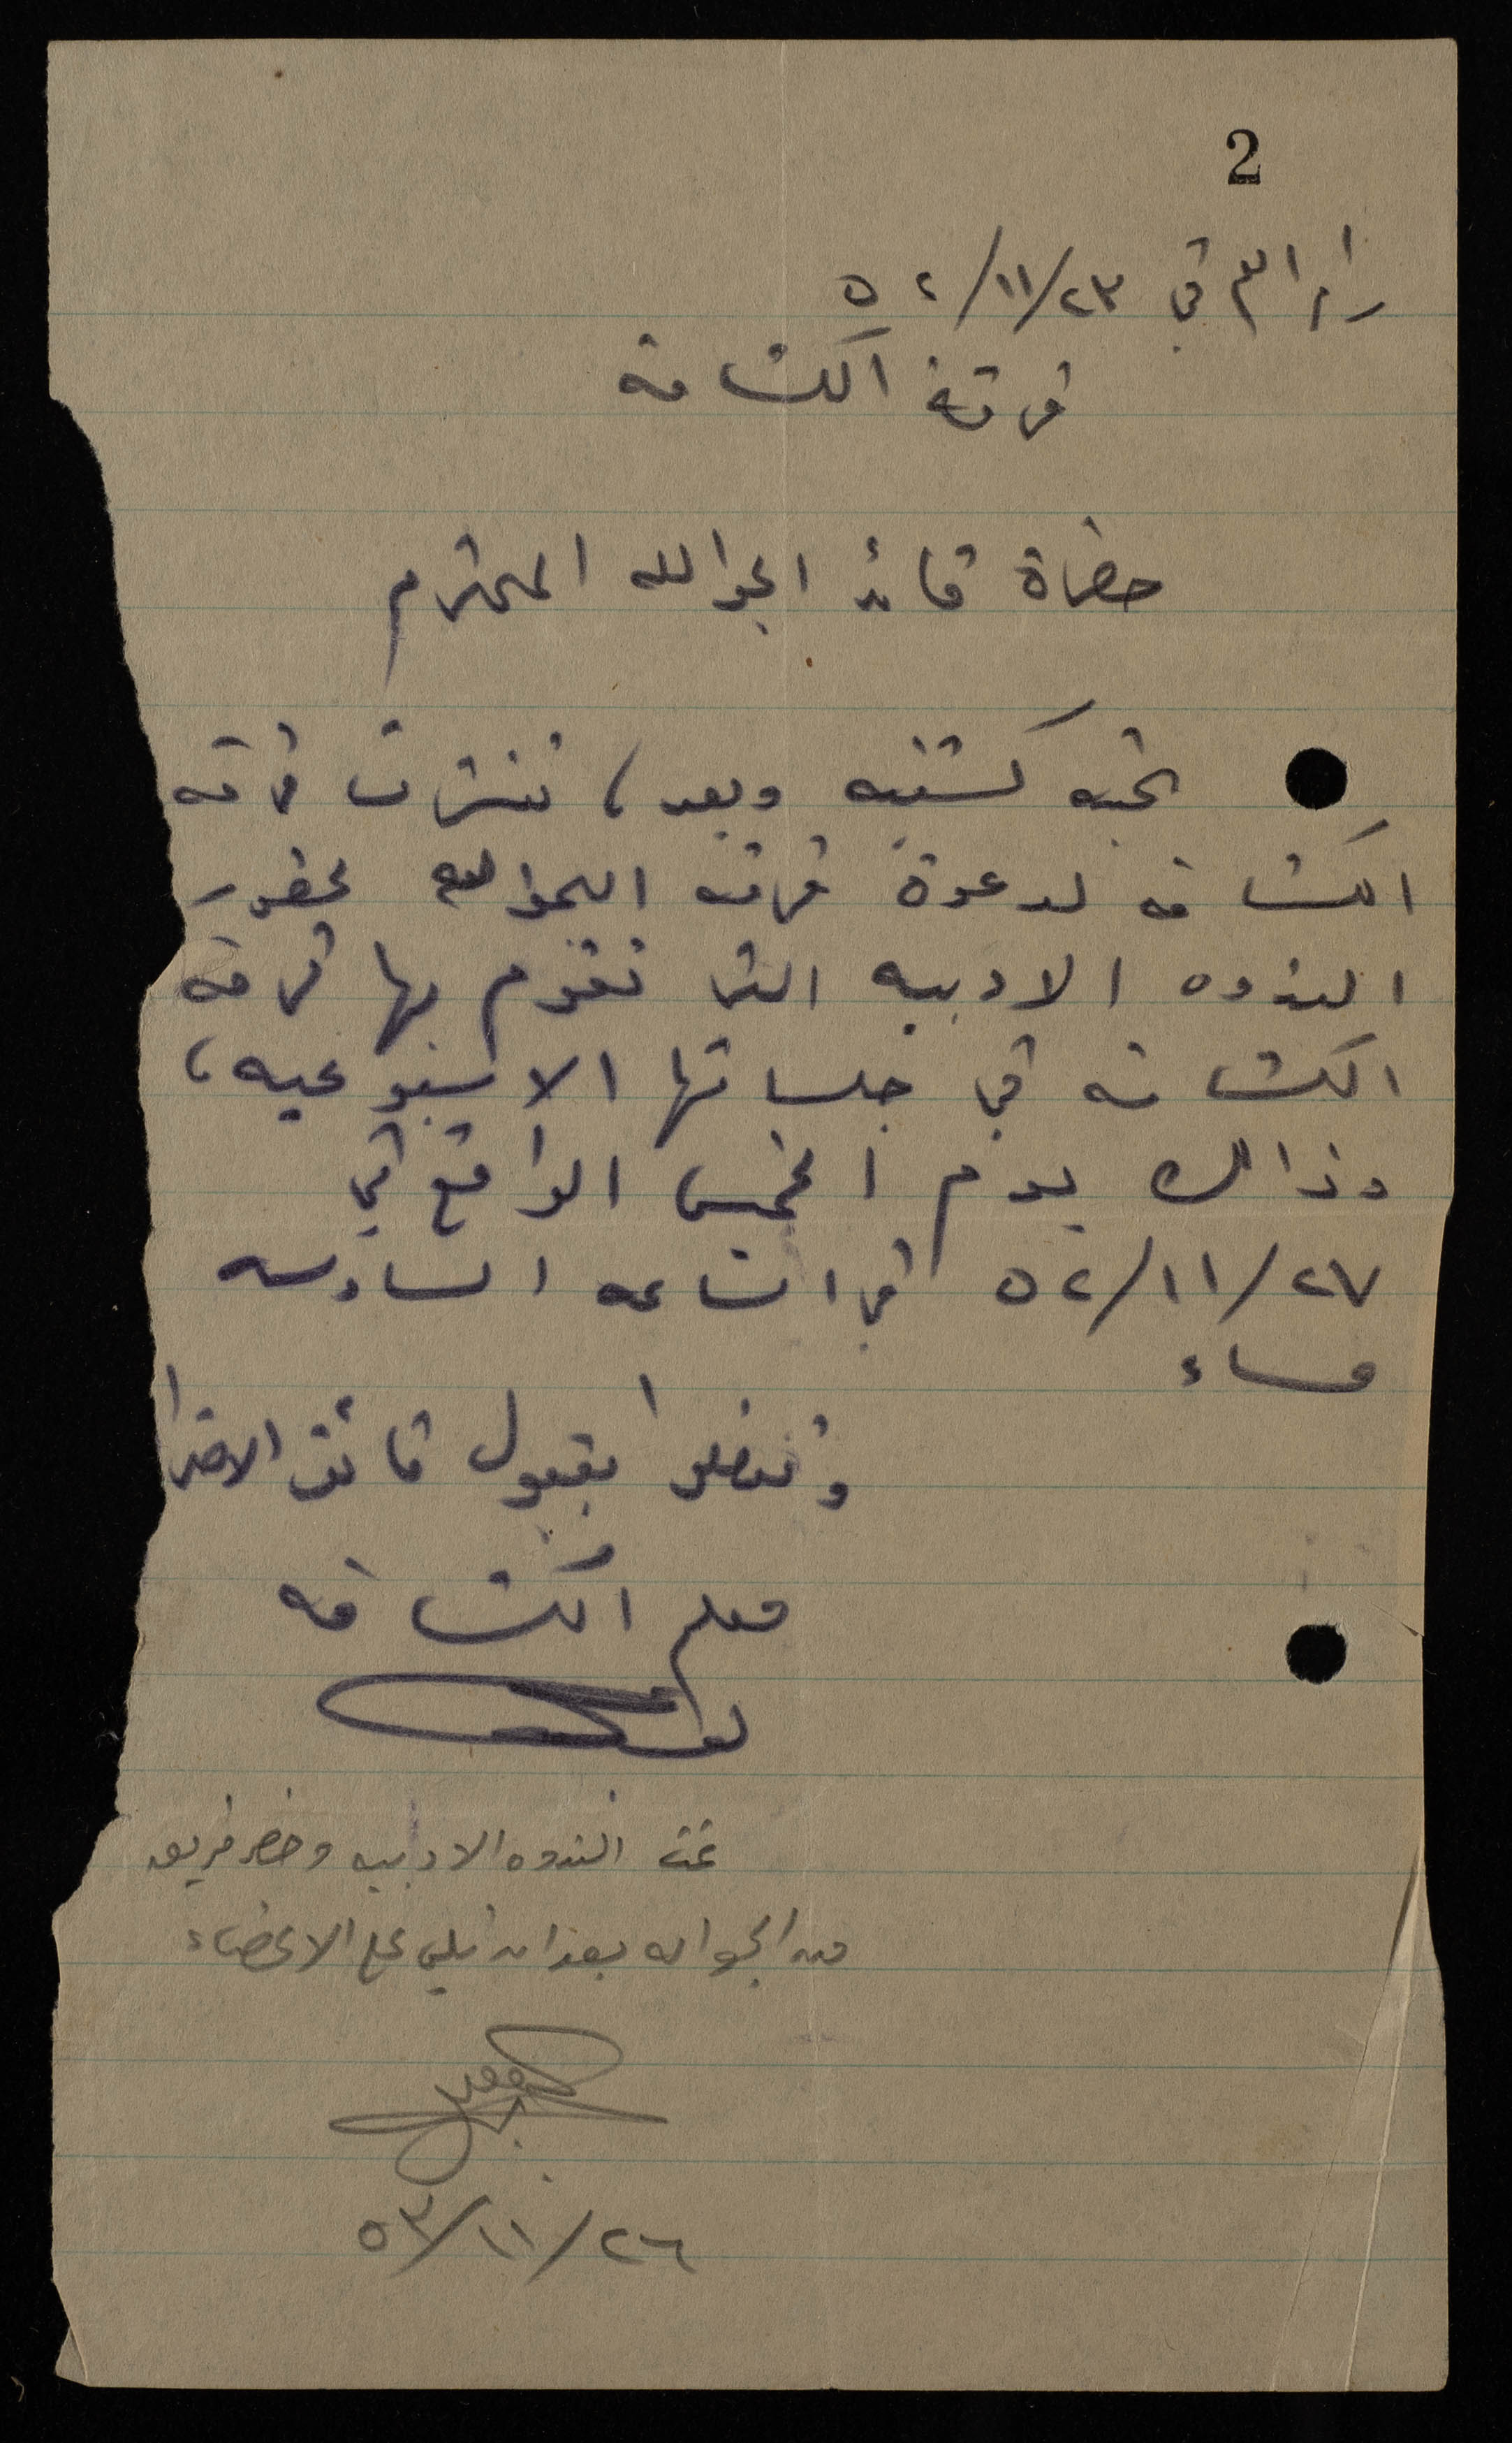 2
رام الله في ٢٣/١١/٥٢
فرقة الكشافه
حضرة قائد الجواله المحترم
تحيه كشفيه وبعد، تتشرف فرقه
الكشافه لدعوة فرقه الجواله لحضور
الندوه الادبيه التي تقوم بها فرقه
الكشافه في جلساتها الاسبوعيه،
وذالك يوم الخميس الواقع في
٢٧/١١/٥٢ في الساعه السادسه
مساء
وتفضلوا بقبول فائق الاحترا
معلم الكشافه
تمت الندوه الادبيه وحضر فريق
من الجواله بعد ان تلي على الاعضاء
٢٦/١١/٥٣